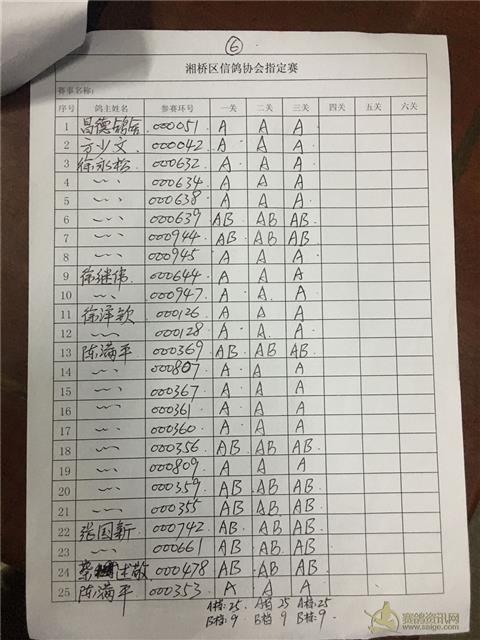 ⑥
湘桥区信鸽协会指定赛
赛事名称:
序号 鸽主姓名 参赛环号 一关 二关 三关 四关 五关 六关
1 昌德鸽舍 000051 A A A
2 方少文 000042 A A A
3 徐永松 000632 A A A
4 〃 000634 A A A
5 〃 000638 A A A
6 〃 000639 AB AB AB
7 〃 000944 AB AB AB
8 〃 000945 A A A
9 徐继伟 000644 A A A
10 〃 000947 A A A
11 徐泽钦 000126 A A A
12 〃 000128 A A A
13 陈满平 000369 AB AB AB
14 〃 000807 A A A
15 〃 000367 A A A
16 〃 000361 A A A
17 〃 000360 A A A
18 〃 000356 AB AB AB
19 〃 000809 A A A
20 〃 000359 AB AB AB
21 〃 000355 AB AB AB
22 张国新 000742 AB AB AB
23 〃 000661 AB AB AB
24 000478 AB AB AB
25 陈满平 000353 A A A
A档:25 A档25 A档:25
B档:9 B档9 B档:9
赛鸽资讯网
www.saige.com